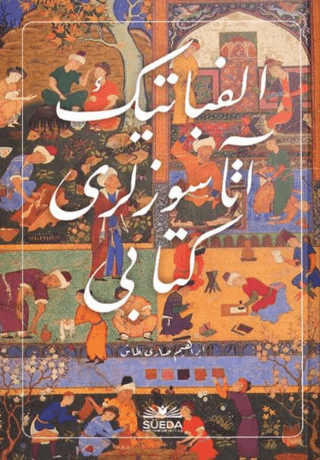 الفباتیك
آتاسوزلری
كتابی
ابراهیم صاری طاش
SÜEDA